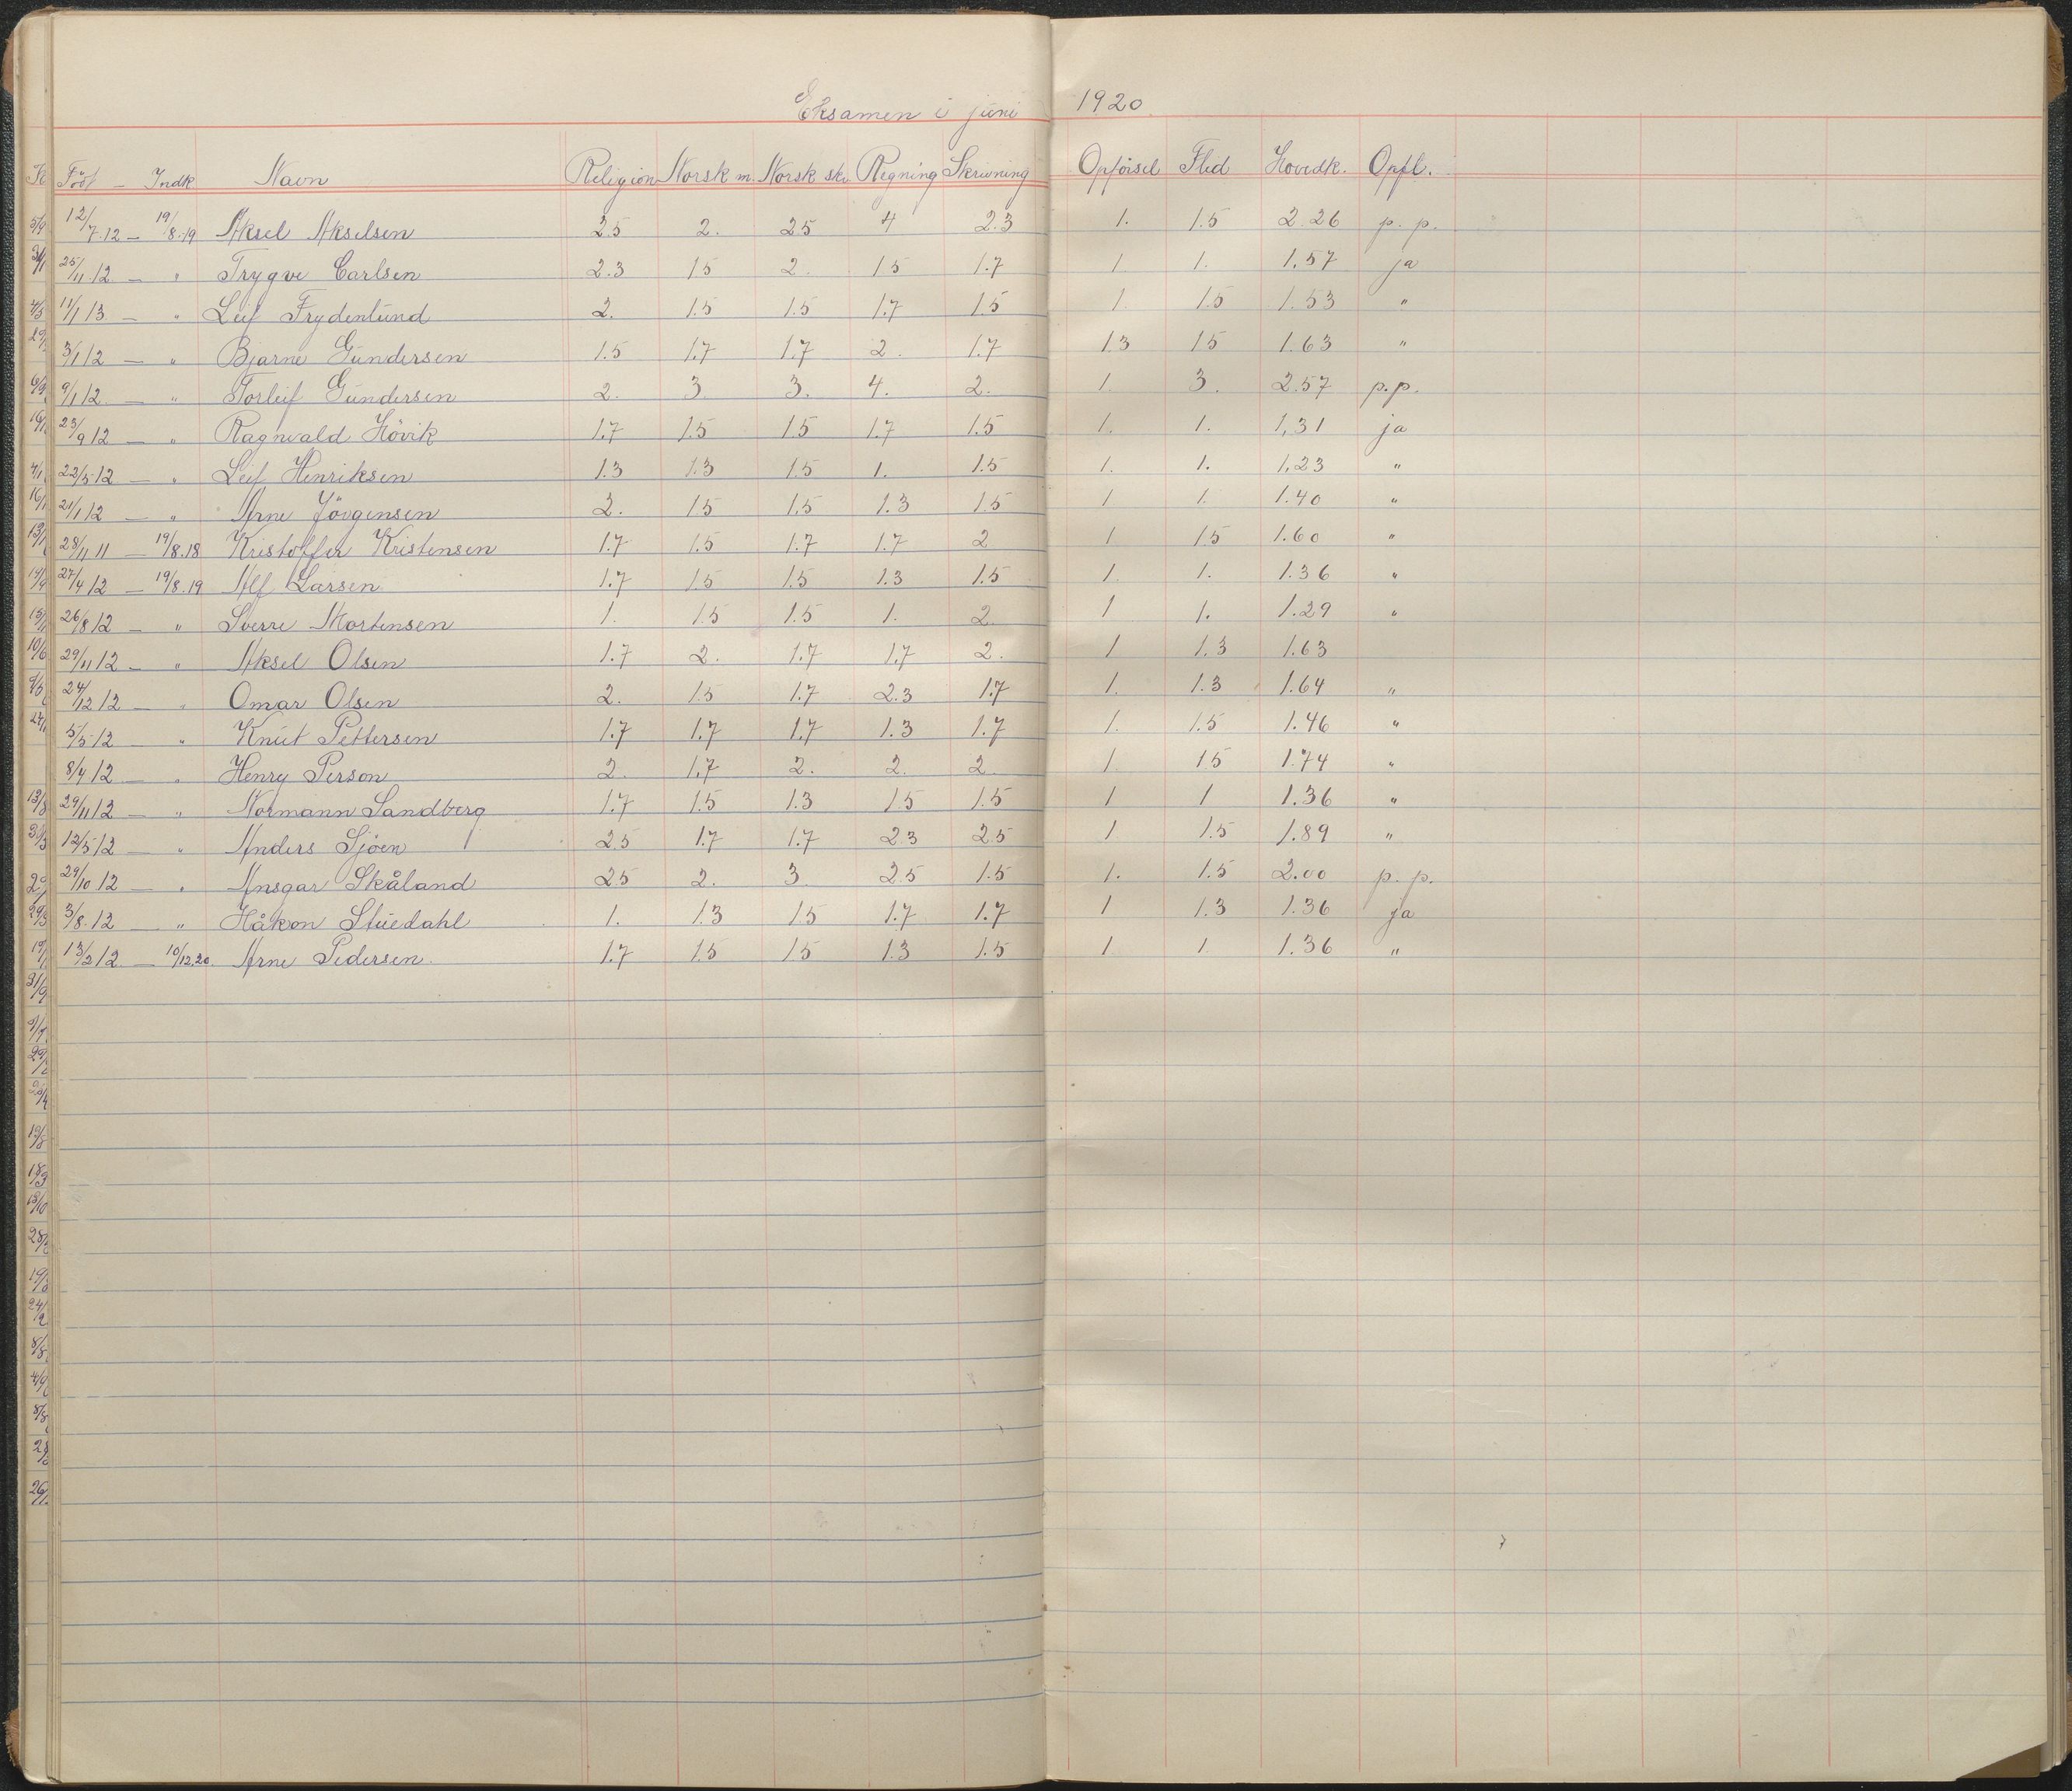 Eksamen i juni 1920.
Född — Indk. Navn Religion Norsk m. Norsk skr. Regning Skrivning Opförsel Flid Hovedk. Opfl.
12/7.12 — 19/8.19 Aksel Akselsen 2.5 2. 2.5 4 2.3 1. 1.5 2.26 p.p.
25/11 12 — " Trygve Carlsen 2.3 1.5 2. 1.5 1.7 1. 1. 1.57 ja
11/1 13 — " Leif Frydenlund 2. 1.5 1.5 1.7 1.5 1. 1.5 1.53 "
3/1 12 — " Bjarne Gundersen 1.5 1.7 1.7 2. 1.7 1.3 1.5 1.63 "
9/1 12 — " Torleif Gundersen 2. 3 3. 4. 2. 1. 3. 2.57 p.p.
23/9 12 — " Ragnvald Hövik 1.7 1.5 1.5 1.7 1.5 1. 1. 1,31 ja
22/5 12 — " Leif Henriksen 1.3 1.3 1.5 1. 1.5 1. 1. 1,23 "
21/1 12 — " Arne Jörgensen 2. 1.5 1.5 1.3 1.5 1 1. 1.40 "
28/11 11 — 19/8.18 Kristoffer Kristensen 1.7 1.5 1.7 1.7 2 1 1.5 1.60 "
27/4 12 — 19/8.19 Alf Larsen 1.7 1.5 1.5 1.3 1.5 1. 1. 1.36 "
26/8 12 — " Sverre Mortensen 1. 1.5 1.5 1. 2. 1 1. 1.29 "
29/11 12 — " Aksel Olsen 1.7 2. 1.7 1.7 2. 1 1.3 1.63
24/12 12 — " Omar Olsen 2. 1.5 1.7 2.3 1.7 1. 1.3 1.64 "
5/5 12 — " Knut Pettersen 1.7 1.7 1.7 1.3 1.7 1. 1.5 1.46 "
8/4 12 — " Henry Person 2. 1.7 2. 2. 2. 1 1.5 1.74 "
29/11 12 — " Normann Sandberg 1.7 1.5 1.3 1.5 1.5 1 1 1.36 "
12/5 12 — " Anders Sjöen 2.5 1.7 1.7 2.3 2.5 1 1.5 1.89 "
29/10 12 — " Ansgar Skåland 2.5 2. 3. 2.5 1.5 1. 1.5 2.00 p.p.
3/8.12 — " Håkon Stuedahl 1. 1.3 1.5 1.7 1.7 1 1.3 1.36 ja
13/2 12 — 10/12.20 Arne Pedersen 1.7 1.5 1.5 1.3 1.5 1 1 1.36 "